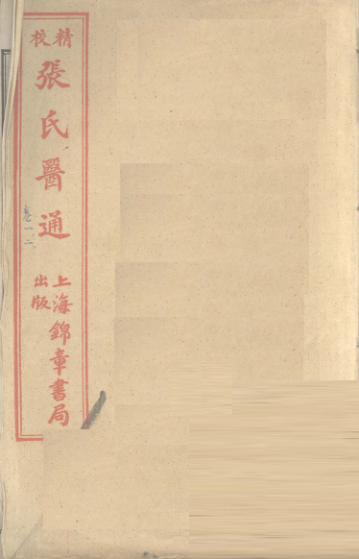 精校
張氏醫通
上海錦章書局
出版
卷一二